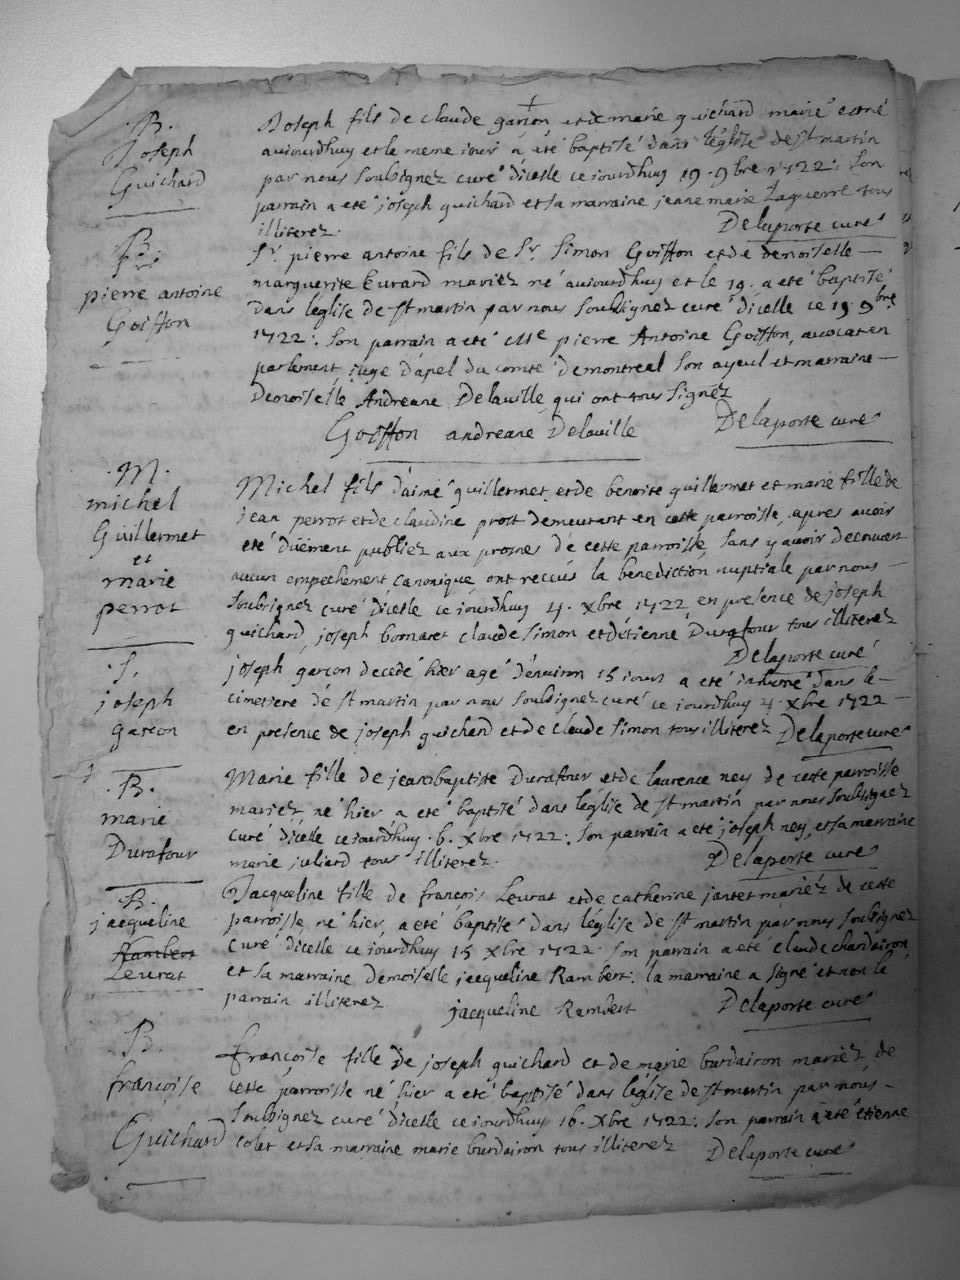 .B.
Joseph
Guichard
Joseph fils de claude garçon et de marie guichard marié est né
aujourdhuy et le meme iour a eté baptisé dans l'église de st martin
par nous soubsignez curé d'icelle ce iourdhuy 19. 9bre 1722: son
parrain a eté joseph guichard et sa marraine jeane marie Laguerre tous
illiterez. Delaporte curé
B.
pierre antoine
Goiffon
Sr. pierre antoine fils de Sr. Simon Goiffon et de demoiselle
marguerite Evrard mariez né aujourdhuy et le 19. a eté baptisé
dans leglise de st martin par nous soubsignez curé d'icelle ce 19 9bre
1722: Son parrain a eté Mre pierre Antoine Goiffon, avocat en
parlement, juge d'apel du comté de montreal son ayeul et marraine
Demoiselle Andreane Delaville, qui ont tous signez
Goiffon andreane Delaville Delaporte curé
.M.
michel
Guillermet
et
marie
perrot
Michel fils d'aimé guillermet, et de benoite guillermet et marie fille de
jean perrot et de claudine prost demeurant en cette parroisse, apres avoir
eté düement publiez aux prosnes de cette parroisse, sans y avoir decouvert
aucun empechement canonique ont reccus la benediction nuptiale par nous
soubsignez curé d'icelle ce iourdhuy 4. Xbre 1722, en presence de joseph
guichard, joseph bornaret claude Simon et d'étienne Durafour tous illiterez
Delaporte curé
S,
joseph
garcon
joseph garçon decedé hier agé d'environ 15 iours a eté inhumé dans le
cimetiere de st martin par nous soubsignez curé ce iourdhuy 4. Xbre 1722
en presence de joseph guichard et de claude Simon tous illiterez Delaporte curé
.B.
marie
Durafour
Marie fille de jeanbaptiste Durafour et de laurence ney de cette parroisse
mariez, né hier a eté baptisé dans l'église de st martin par nous soubsignez
curé d'icelle ce iourdhuy. 6. Xbre 1722: Son parrain a eté joseph ney, et sa marraine
marie juliard tous illiterez. Delaporte curé
.B.
jacqueline
Rambert
Levrat
Jacqueline fille de françois Levrat et de catherine jantet mariéz de cette
parroisse, né hier, a eté baptisé dans l'église de st martin par nous soubsignez
curé d'icelle ce iourdhuy 15 Xbre 1722. Son parrain a eté claude chardairon
et sa marraine demoiselle jacqueline Rambert: la marraine a signé et non le
parrain illiterez jacqueline Rambert Delaporte curé
.B.
françoise
Guichard
françoise fille de joseph guichard et de marie burdairon mariez de
cette parroisse né hier a eté baptisé dans l'église de st martin par nous
soubsignez curé d'icelle ce iourdhuy 16. Xbre 1722: son parrain a eté etienne
colet et sa marraine marie burdairon tous illiterez Delaporte curé